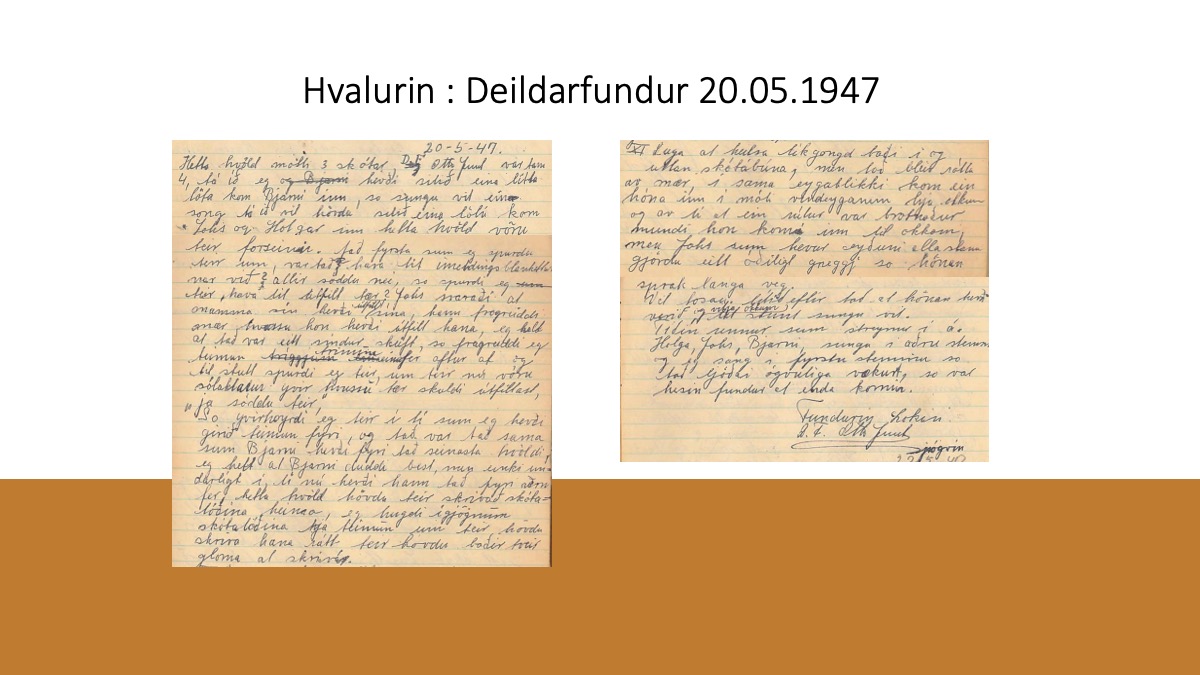 Hvalurin : Deildarfundur 20.05.1947
20-5-47.
Hetta kvöld mötti 3 skótar D.F. Oth Juul var tann
4, tá ið eg og Bjarni hevði sitið eina lítla
lötu kom Bjarni inn, so sungu vit ein
song tá ið vit hövdu sitið eina lötu kom
Johs og Holgar inn hetta kvöld vóru
teir forseinir. Tað fyrsta sum eg spurdi
teir um, var tað hava tit innmeldings blankettir
var við? allir söddu nei, so spurdi eg sum
teir, hava tit útfilt tær? Johs svaraði at
mamma sín hevði útfilt sína, hann fregreiddi
mær hvussu hon hevði útfilt hana, eg helt
at tað var eitt sindur skeift, so fragreiddi eg
teimum trimum aftur at og
til slutt spurdi eg teir, um teir nú vóru
sólabladur yvir hvussu tær skuldi útfillast,
"ja söddu teir,"
So yvirhoyrdi eg teir í tí sum eg hevði
givið teimum fyri, og tað var tað sama
sum Bjarni hevði fyri tað seinasta kvöldi,
eg helt at Bjarni dugdi best, men einki un-
darligt í, tí nú hevði hann tað fyri aðru
ferð, hetta kvöld hövdu teir skrivað skóta-
lógina heima, eg hugdi ígjögnum
skótalógina hjá teimum um teir hövdu
skriva hana rætt teir hovdu báðir tveir
gloma at skriva
XI Luga at heilsa líkgongd tað í og
uttan skótabúna, men tað bleiv rætta
av mær, í sama eygablikki kom ein
höna inn í móti vindeyganum hjá okkum
og av tí at ein rútur var brotnaður
mundi hon koma inn til okkum,
men Johs sum hevur eyðuni alla stani
gjörda eitt ógiligt greggj so hönan
sprak langa veg.
Vit lósaði tátt eftir tað at hönan hevði
verið og vitja okkum sungu vit.
Tíðin rennur sum streymur í á.
Holga, Johs, Bjarni, sungu í aðru stemmu
og eg sang í fyrstu stemmu so
tað ljóðaði ógvuliga vakurt, so var
hesin fundur at enda komin.
Fundurin Lokin.
D.F. Oth Juul
Sjógvín